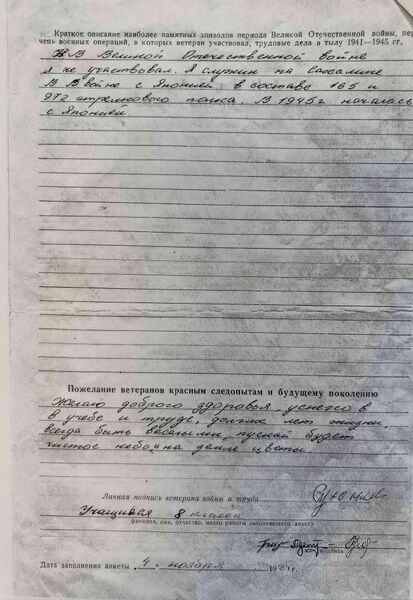 Краткое описание наиболее памятных эпизодов периода Великой Отечественной войны, пере
чень военных операций, в которых ветеран участвовал, трудовые дела в тылу 1941—1945 гг.
В Великой Отечественной войне
я не участвовал. Я служил на Сахалине
В Войне с Японией в составе 165 и
972 стрелкового полка. В 1945г началась
с Японией
Пожелание ветеранов красным следопытам и будущему поколению
Желаю доброго здоровья, успехов
в учебе и труде, долгих лет жизни
всегда быть веселыми, пускай будет
чистое небо, на земле цветы
Личная подпись ветерана войны и труда
Учащийся 8 класса
фамилия, имя, отчество, место работы заполняющего анкету
подпись
Дата заполнения анкеты 4 ноября 1984 г.